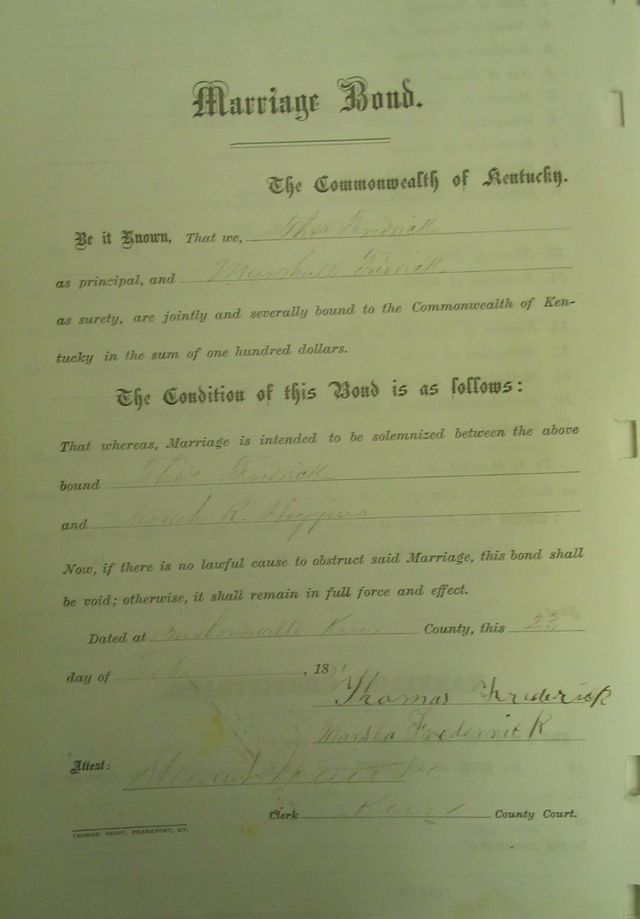 Marriage Bond.
The Commonwealth of Kentucky.
Be it Known, That we, Thos Fredrick
as principal, and Marshall
as surety, are jointly and severally bound to the Commonwealth of Ken-
tucky in the sum of one hundred dollars.
The Condition of this Bond is as follows:
That whereas, Marriage is intended to be solemnized between the above
bound Thos
and R. Higgins
Now, if there is no lawful cause to obstruct said Marriage, this bond shall
be void; otherwise, it shall remain in full force and effect.
Dated at County, this 23
day of , 18
Thomas Frederick
Marshal Frederrick
Attest:
Clerk County Court.
YEOMAN PRINT, FRANKFORT, KY.